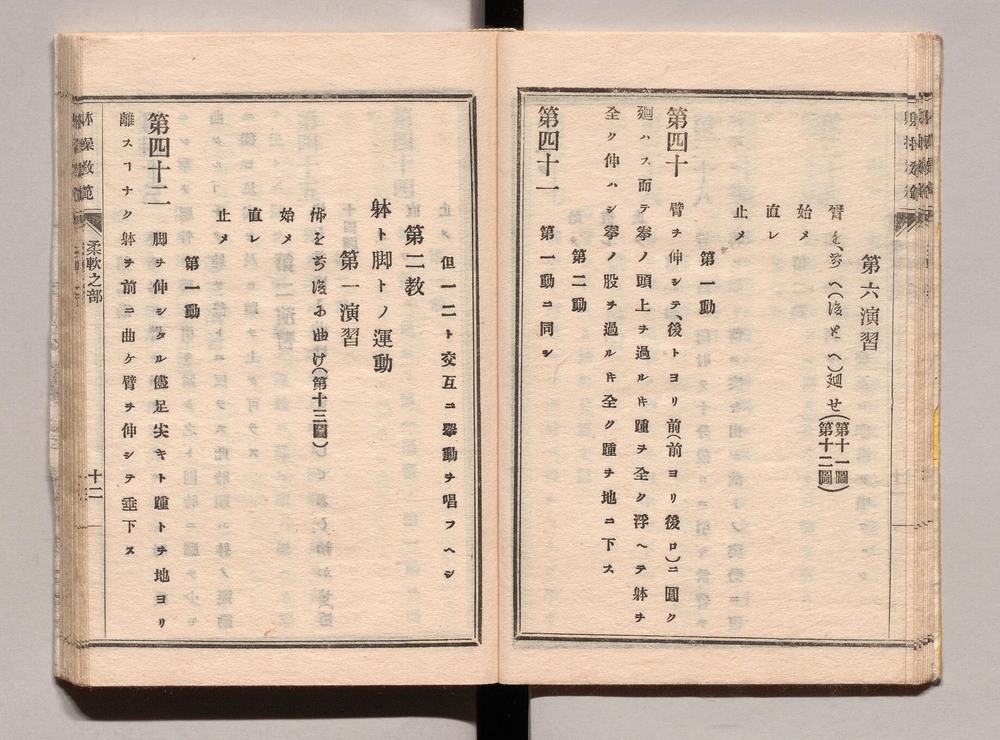 第六演習
臂を、夢へ(後と へ)廻せ(第十一圖 第十二圖)
始メ
直レ
止メ
第一動
第四十 臂ヲ伸シテ、後トヨリ前(前ヨリ後ロ)ニ圓ク
廻ハス而テ拳ノ頭上ヲ過ルキ踵ヲ全ク浮ヘテ躰ヲ
全ク伸ハシ拳ノ股ヲ過ルキ全ク踵ヲ地ニ下ス
第二動
第四十一 第一動ニ同シ
但一二ト交互ニ擧動ヲ唱フヘシ
第二教
躰ト脚トノ運動
第一演習
曲け(第十三圖)
始メ
直レ
止メ
第一動
第四十二 脚ヲ伸シタル儘足尖キト踵トヲ地ヨリ
離スヿナク躰ヲ前ニ曲ケ臂ヲ伸シテ垂下ス
体操教範
柔軟之部
十二